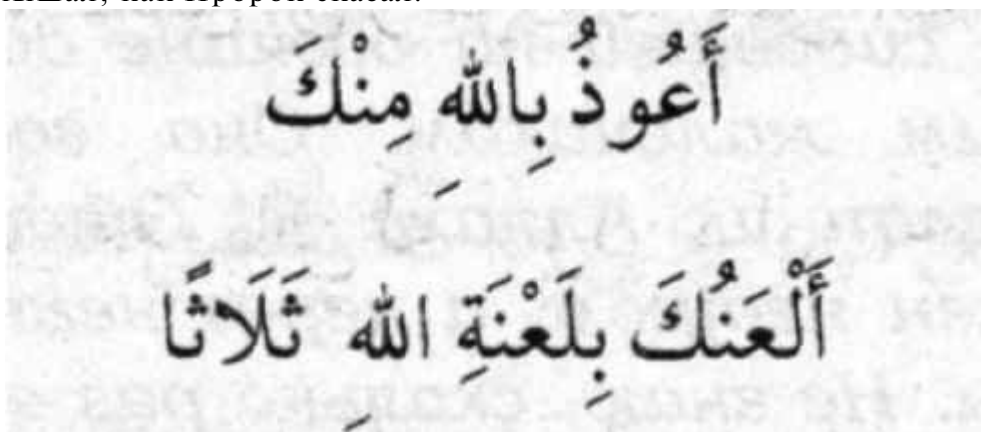 أَعُوذُ بِاللهِ مِنْكَ
أَلْعَنُكَ بِلَعْنَةِ اللهِ ثَلَاثًا